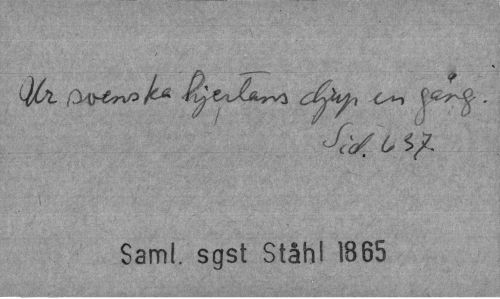 Ur svenska hjertans djup en gång.
Sid. 637.
Saml. sgst Ståhl 1865